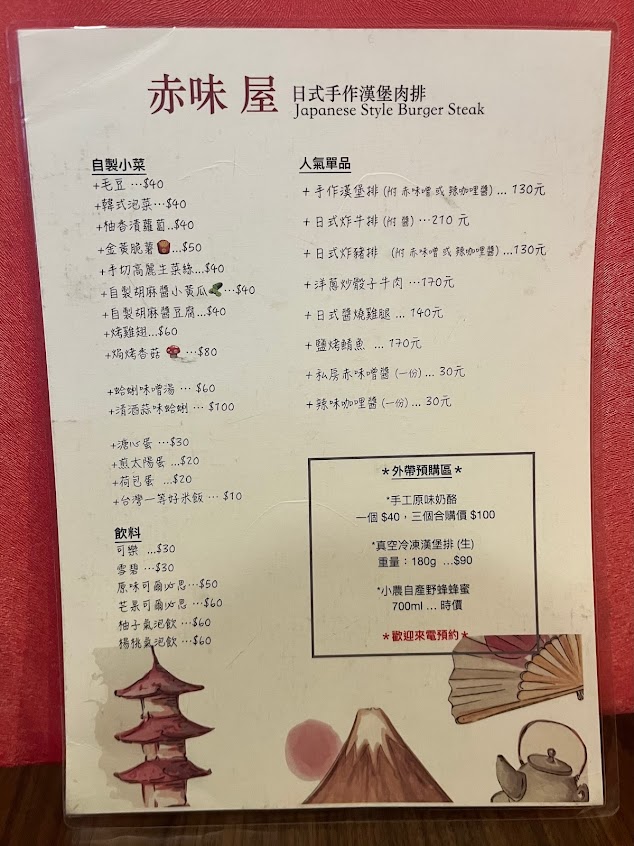 赤味屋 日式手作漢堡肉排
Japanese Style Burger Steak
自製小菜
+毛豆 …$40
+韓式泡菜…$40
+柚香漬蘿蔔..$40
+金黃脆薯…$50
+手切高麗生菜絲…$40
+自製胡麻醬小黃瓜…$40
+自製胡麻醬豆腐..$40
+烤雞翅…$60
+焗烤香菇 …$80
+蛤蜊味噌湯 … $60
+清酒蒜味蛤蜊 … $100
+溏心蛋 …$30
+煎太陽蛋 …$20
+荷包蛋 …$20
+台灣一等好米飯 … $10
飲料
可樂 …$30
雪碧 …$30
原味可爾必思…$50
芒果可爾必思 …$60
柚子氣泡飲 …$60
楊桃氣泡飲 …$60
人氣單品
+ 手作漢堡排 (附 赤味噌 或 辣咖哩醬) … 130元
+ 日式炸牛排 (附 醬) …210 元
+ 日式炸豬排 (附 赤味噌 或 辣咖哩醬) …130元
+ 洋蔥炒骰子牛肉 …170元
+ 日式醬燒雞腿 … 140元
+ 鹽烤鯖魚 … 170元
+ 私房赤味噌醬 (一份) … 30元
+ 辣味咖哩醬 (一份) … 30元
*外帶預購區*
*手工原味奶酪
一個 $40，三個合購價 $100
*真空冷凍漢堡排 (生)
重量：180g …$90
*小農自產野蜂蜂蜜
700ml … 時價
*歡迎來電預約*